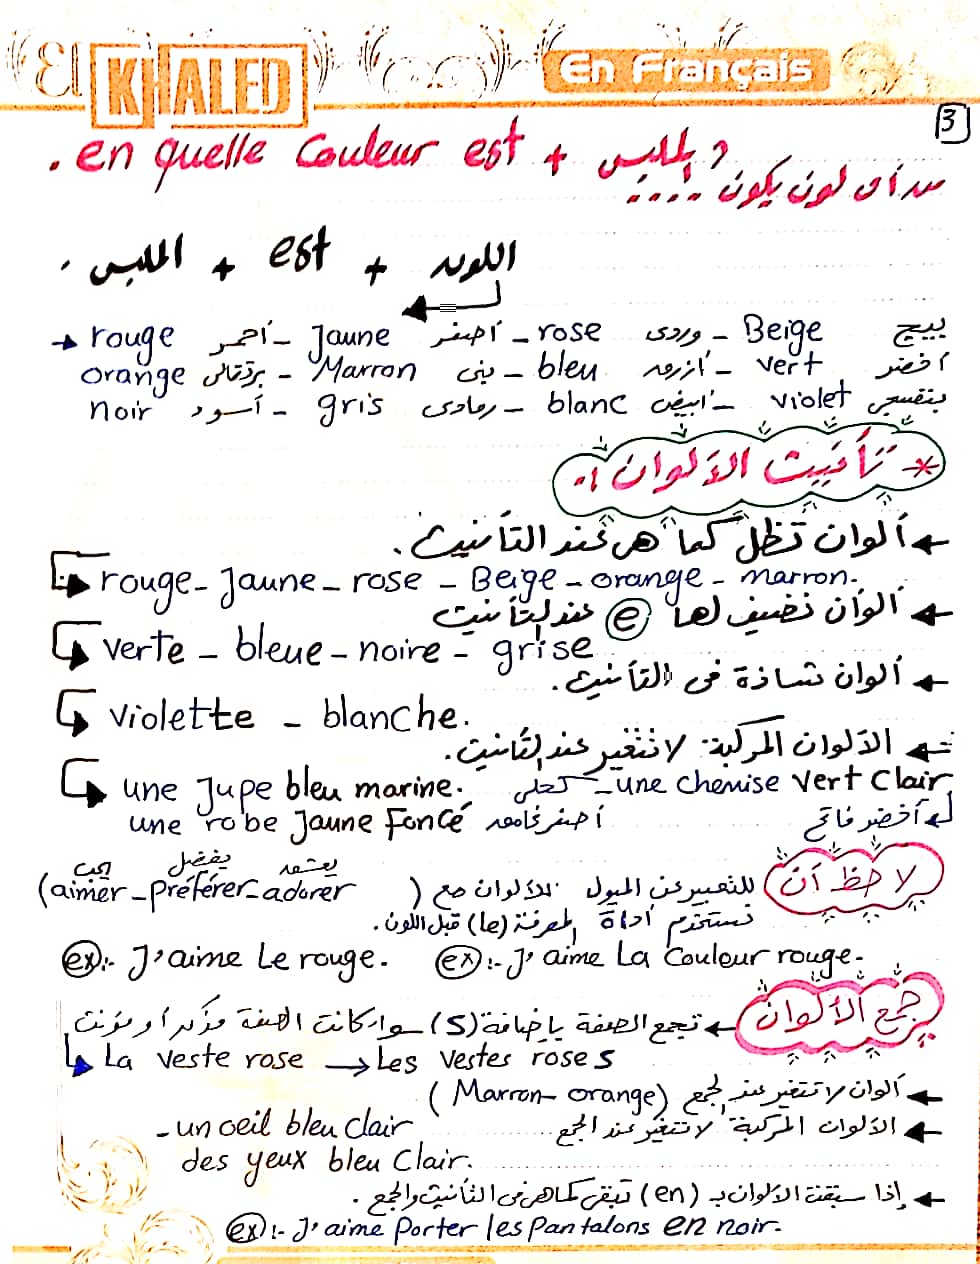 El KHALED En Français
3
. en quelle Couleur est + الملبس ?
من أى لون يكون ....
. الملبس + est + اللون
→ rouge أحمر - Jaune أصفر - rose وردى - Beige بييج
orange برتقالى - Marron بنى - bleu أزرق - vert أخضر
noir أسود - gris رمادى - blanc أبيض - violet بنفسجى
* تأنيث الألوان :-
← ألوان تظل كما هى عند التأنيث.
rouge - Jaune - rose - Beige - orange - marron.
← ألوان نضيف لها (e) عند التأنيث
verte - bleue - noire - grise
← ألوان شاذة فى التأنيث.
violette - blanche.
← الألوان المركبة لا تتغير عند التأنيث.
une Jupe bleu marine. كحلى - une chemise vert Clair
une robe Jaune Foncé أصفر غامق أخضر فاتح
يحب يفضل يعشق
لاحظ أن للتعبير عن الميول للألوان مع (aimer - préférer - adorer)
نستخدم أداة المعرفة (le) قبل اللون.
ex:- J'aime Le rouge. ex:- J'aime La Couleur rouge.
جمع الألوان ← تجمع الصفة بإضافة (s) سواء كانت الصفة مذكر أو مؤنث
La veste rose → Les vestes roses
← ألوان لا تتغير عند الجمع (Marron - orange)
← الألوان المركبة لا تتغير عند الجمع - un oeil bleu clair
des yeux bleu Clair.
← إذا سبقت الألوان بـ (en) تبقى كما هى فى التأنيث والجمع .
ex:- J'aime Porter les pantalons en noir.